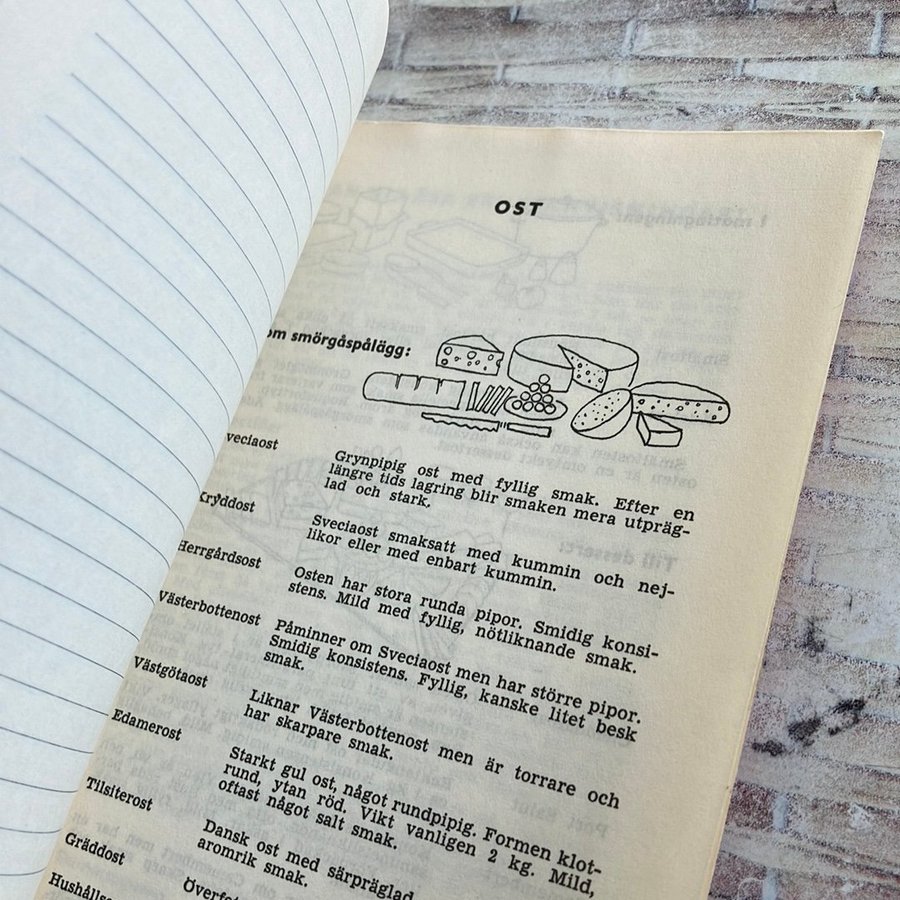 OST
om smörgåspålägg:
veciaost
Grynpipig ost med fyllig smak. Efter en
längre tids lagring blir smaken mera utpräg-
lad och stark.
Kryddost
Sveciaost smaksatt med kummin och nej-
likor eller med enbart kummin.
Herrgårdsost
Osten har stora runda pipor. Smidig konsi-
stens. Mild med fyllig, nötliknande smak.
Västerbottenost
Påminner om Sveciaost men har större pipor.
Smidig konsistens. Fyllig, kanske litet besk
smak.
Västgötaost
Liknar Västerbottenost men är torrare och
har skarpare smak.
Edamerost
Starkt gul ost, något rundpipig. Formen klot-
rund, ytan röd. Vikt vanligen 2 kg. Mild,
oftast något salt smak.
Tilsiterost
Dansk ost med särpräglad
aromrik smak.
Gräddost
Överfet
Hushålls